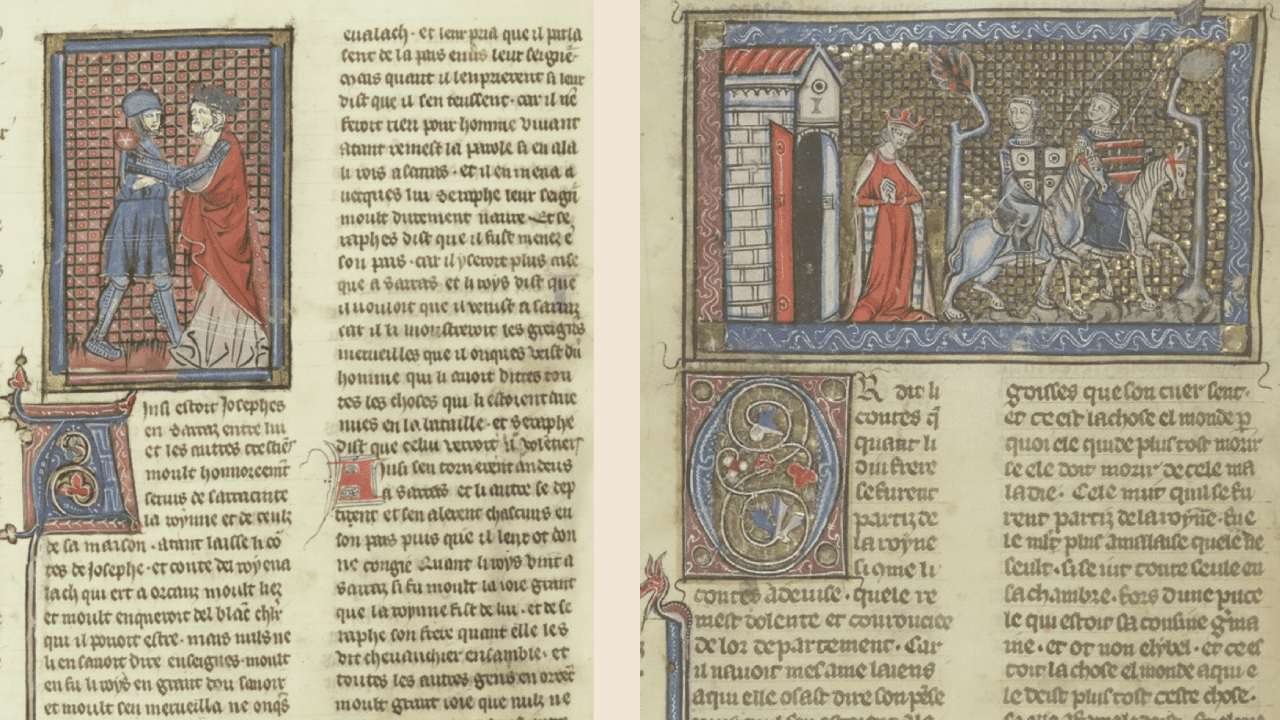 Insi estoit Josephes
en Sarraz entre lui
et les autres crestiēs
moult honnoreemt
seruis de sarracinte
la royne et de ceulz
de sa maison · atant laisse li cō
tes de Josephe · et conte del roy eua
lach qui ert a orcauz moult liez
et moult enqueroit del blāc chlr
qui il pouoit estre · mais nuls ne
li en sauoit dire enseignes · moult
en fu li roys en grant dou sauoir
et moult sen merueilla ne onq̄s
eualach · et leur pria que il parla
sent de la pais enuis leur seigne
mais quant il lenprierent si leur
dist que il sen teussent · car il nē
feroit rien pour homme viuant
Atant remest la parole si en ala
li rois a sarras · et il en mena a
uecques lui Seraphe leur seign
moult durement naure · Et se
raphes dist que il fust menez ē
son pais · car il y seroit plus aise
que a Sarras et li roys dist que
il uouloit que il uenist a sarraz
car il li monstreroit les greign̄s
merueilles que il onques veist du
homme qui li auoit dittes tou
tes les choses qui li estoient aue
nues en la bataille · et Seraphe
dist que celui verroit il volētiers
Ainsi sen tornerent andeus
a Sarras et li autre se dep
tirent et sen alerent chascuns en
son pais puis que il leur ot don
ne congie Quant li roys vint a
Sarraz si fu moult la ioie grant
que la royne fist de lui · et de se
raphe son frere quant elle les
vit cheuauchier ensamble · et
toutes les autres gens en orent
moult grant ioie que nulz ne
OR dit li
contes q̄
quant li
dui frere
se furent
partiz de
la royne
si 9me li
contes a deuise · quele re
mest dolente et courroucee
de lor departement · Car
il nauoit mes ame laiens
a qui elle osast dire son pēse
goisses que son cuer sent ·
et ce est la chose el monde p
quoi ele quide plus tost morir
se ele doit morir de cele ma
ladie · Cele nuit quil se fu
rent partiz de la royne fue
le mlt plus amalaise quele ne
seult · si se iut toute seule en
sa chambre · fors dune puce
le qui estoit sa cousine g̃ma
ine · et ot non elybel · et ce est
toit la chose el monde a qui e
le deist plus tost ceste chose ·